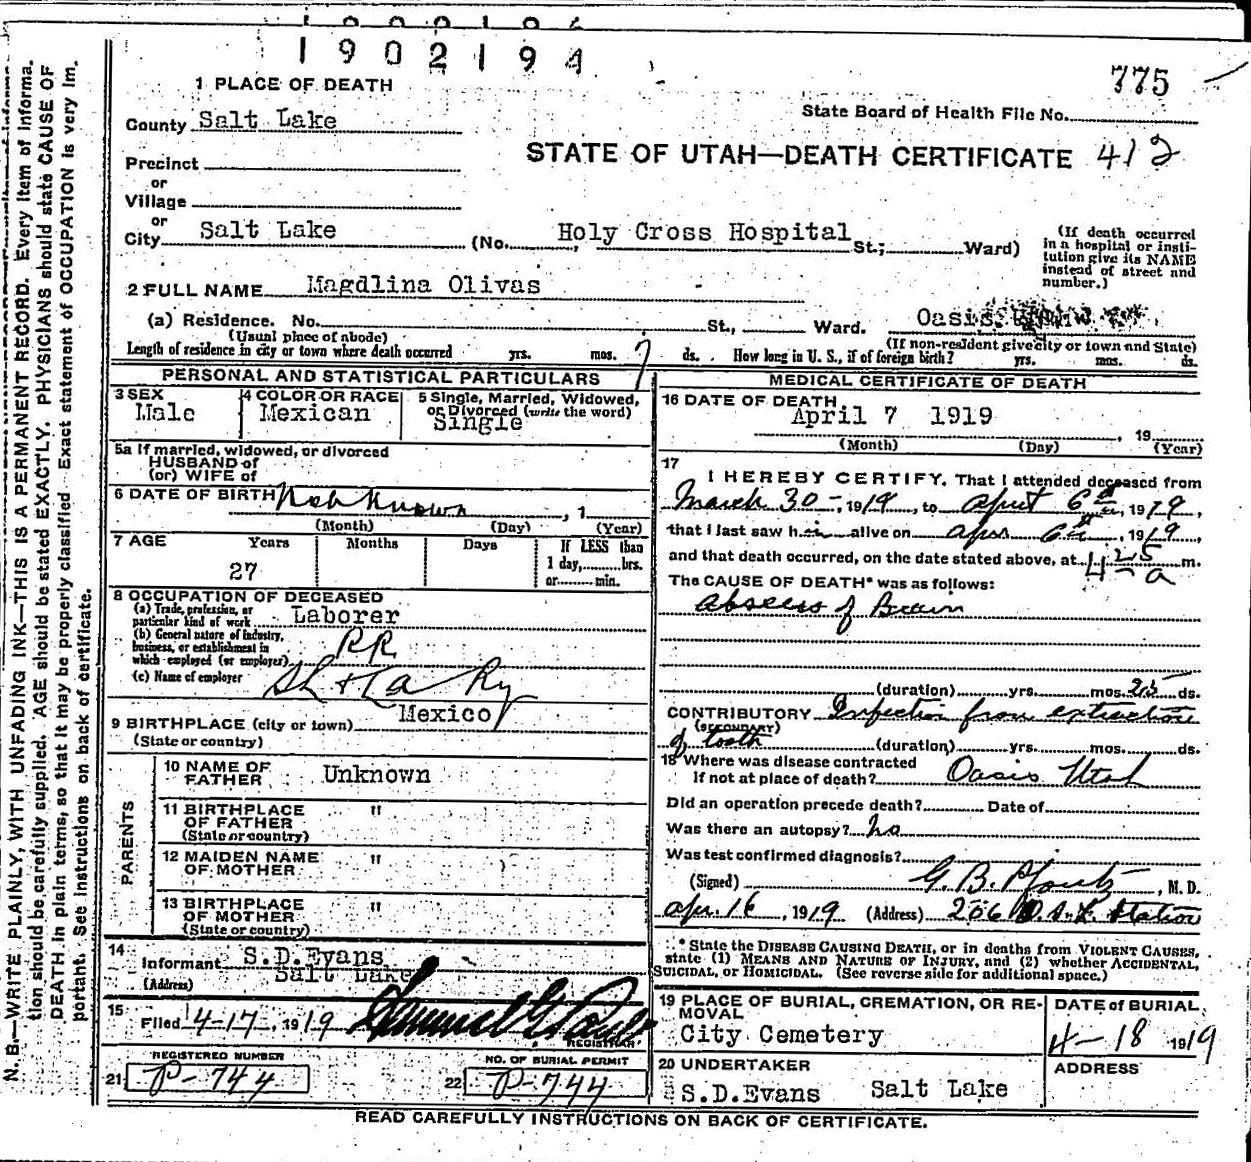 1902194
775
1 PLACE OF DEATH
State Board of Health File No.
County Salt Lake
STATE OF UTAH—DEATH CERTIFICATE 412
Precinct
or
Village
or
City Salt Lake (No. Holy Cross Hospital St.; Ward)
(If death occurred in a hospital or insti-
tution give its NAME
instead of street and
number.)
2 FULL NAME Magdlina Olivas
(a) Residence. No. St., Ward. Oasis,
(Usual place of abode) (If non-resident give city or town and State)
Length of residence in city or town where death occurred yrs. mos. 7 ds. How long in U. S., if of foreign birth? yrs. mos. ds.
PERSONAL AND STATISTICAL PARTICULARS
3 SEX Male
4 COLOR OR RACE Mexican
5 Single, Married, Widowed,
or Divorced (write the word)
Single
5a If married, widowed, or divorced
HUSBAND of
(or) WIFE of
6 DATE OF BIRTH Not Known, 1
(Month) (Day) (Year)
7 AGE Years Months Days If LESS than
27 1 day, hrs.
or min.
8 OCCUPATION OF DECEASED
(a) Trade, profession, or
particular kind of work Laborer
(b) General nature of industry,
business, or establishment in
which employed (or employer) RR.
(c) Name of employer SL & LA Ry
9 BIRTHPLACE (city or town) Mexico
(State or country)
PARENTS
10 NAME OF
FATHER Unknown
11 BIRTHPLACE
OF FATHER "
(State or country)
12 MAIDEN NAME
OF MOTHER "
13 BIRTHPLACE
OF MOTHER "
(State or country)
14
Informant S.D.Evans
(Address) Salt Lake
15
Filed 4-17, 1919
REGISTRAR
REGISTERED NUMBER
21 P-744
NO. OF BURIAL PERMIT
22 P-744
MEDICAL CERTIFICATE OF DEATH
16 DATE OF DEATH
April 7 1919, 19
(Month) (Day) (Year)
17
I HEREBY CERTIFY, That I attended deceased from
March 30-, 1919, to April 6th, 1919,
that I last saw him alive on Apr 6th, 1919,
and that death occurred, on the date stated above, at 4 25 a m.
The CAUSE OF DEATH* was as follows:
Abscess of Brain
(duration) yrs. mos. 25 ds.
CONTRIBUTORY Infection from extraction
(SECONDARY)
of tooth (duration) yrs. mos. ds.
18 Where was disease contracted
if not at place of death? Oasis Utah
Did an operation precede death? Date of
Was there an autopsy? no
Was test confirmed diagnosis?
(Signed) G. B. Pfoutz, M. D.
Apr. 16, 1919 (Address) 206 O.S.L. Station
* State the DISEASE CAUSING DEATH, or in deaths from VIOLENT CAUSES,
state (1) MEANS AND NATURE OF INJURY, and (2) whether ACCIDENTAL,
SUICIDAL, or HOMICIDAL. (See reverse side for additional space.)
19 PLACE OF BURIAL, CREMATION, OR RE-
MOVAL
City Cemetery
DATE of BURIAL
4-18 1919
20 UNDERTAKER
S.D.Evans Salt Lake
ADDRESS
READ CAREFULLY INSTRUCTIONS ON BACK OF CERTIFICATE.
N. B.—WRITE PLAINLY, WITH UNFADING INK—THIS IS A PERMANENT RECORD. Every item of informa-
tion should be carefully supplied. AGE should be stated EXACTLY. PHYSICIANS should state CAUSE OF
DEATH in plain terms, so that it may be properly classified. Exact statement of OCCUPATION is very im-
portant. See instructions on back of certificate.